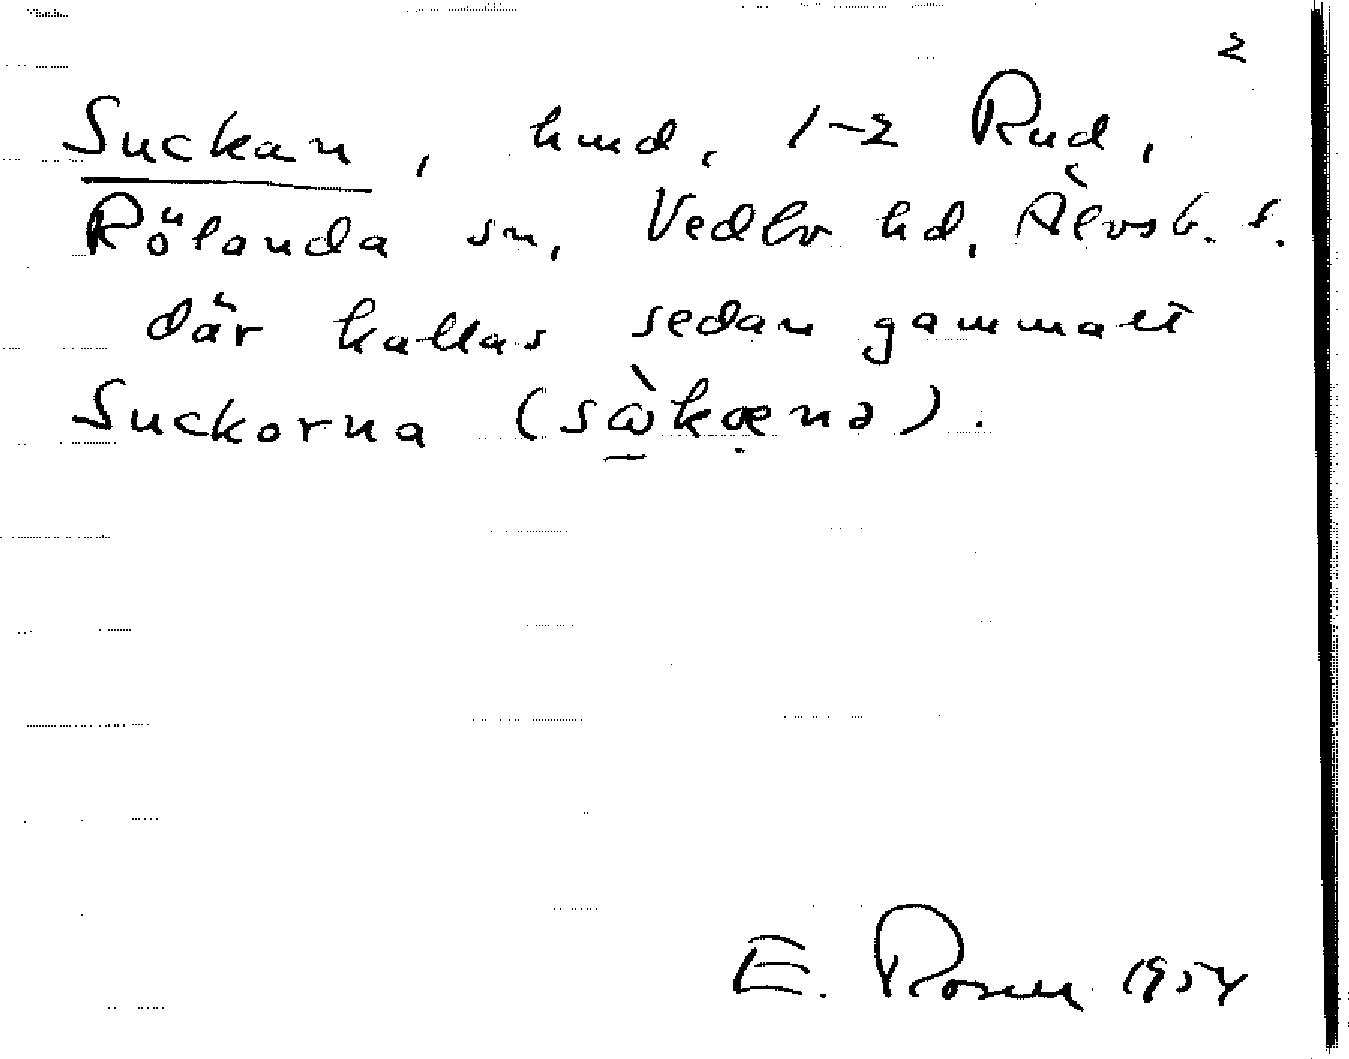 2
Suckan, hmd, 1-2 Rud,
Rölanda sn, Vedbo hd, Älvsb. l.
där kallas sedan gammalt
Suckorna (
E. Rosell 1954